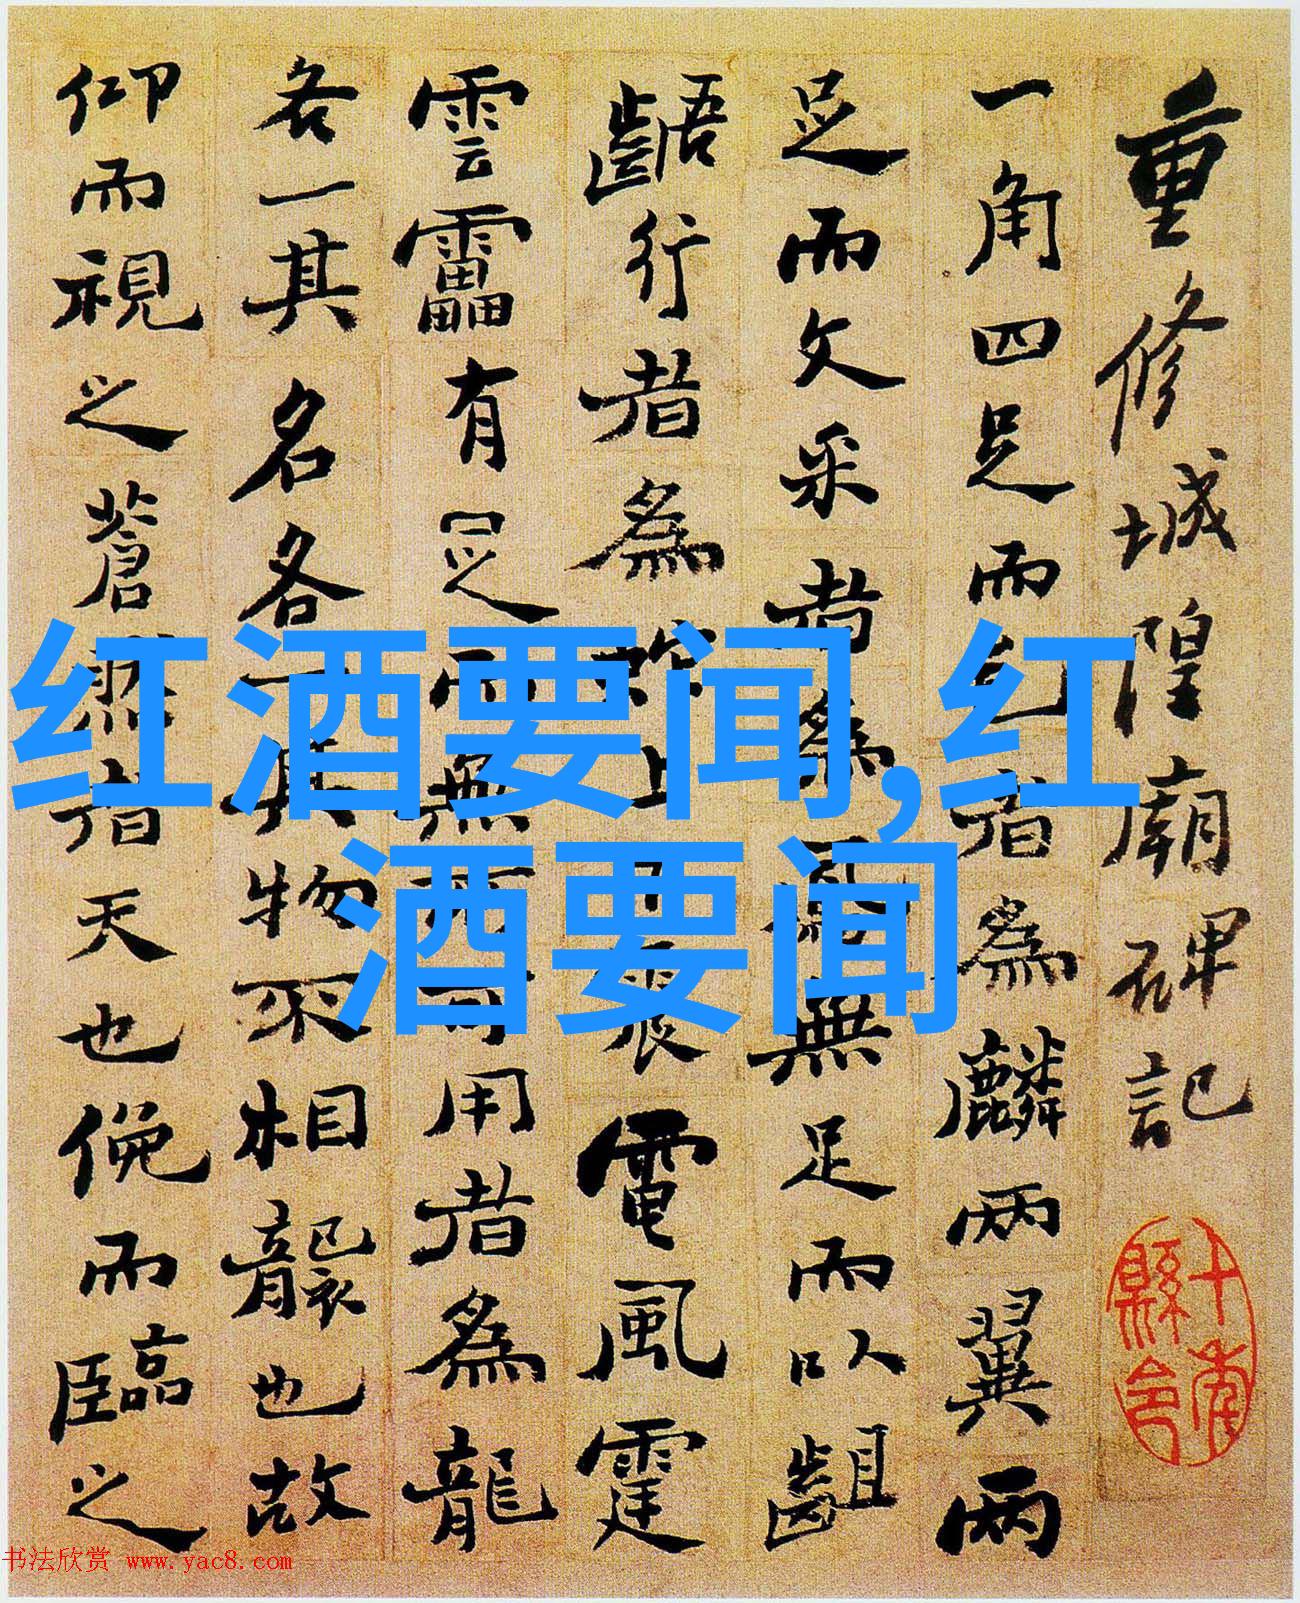 重修城隍廟碑記
一角四足而毛者為麟兩翼兩
足而文采者為鳳無足而以齟
齬行者為蛇上下震電風霆
雲靁有足而無所可用者為龍
各一其名各一其物不相襲也故
仰而視之蒼然者天也俛而臨之
红酒要闻,红
酒要闻
书法欣赏 www.yac8.com